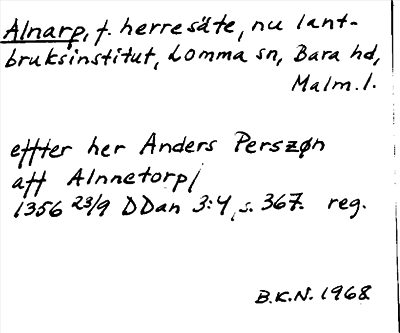 Alnarp, f. herresäte, nu lant-
bruksinstitut, Lomma sn, Bara hd,
Malm.l.
effter her Anders Perszøn
aff Alnnetorp/
1356 23/9 DDan 3:4, s. 367. reg.
B.K.N. 1968